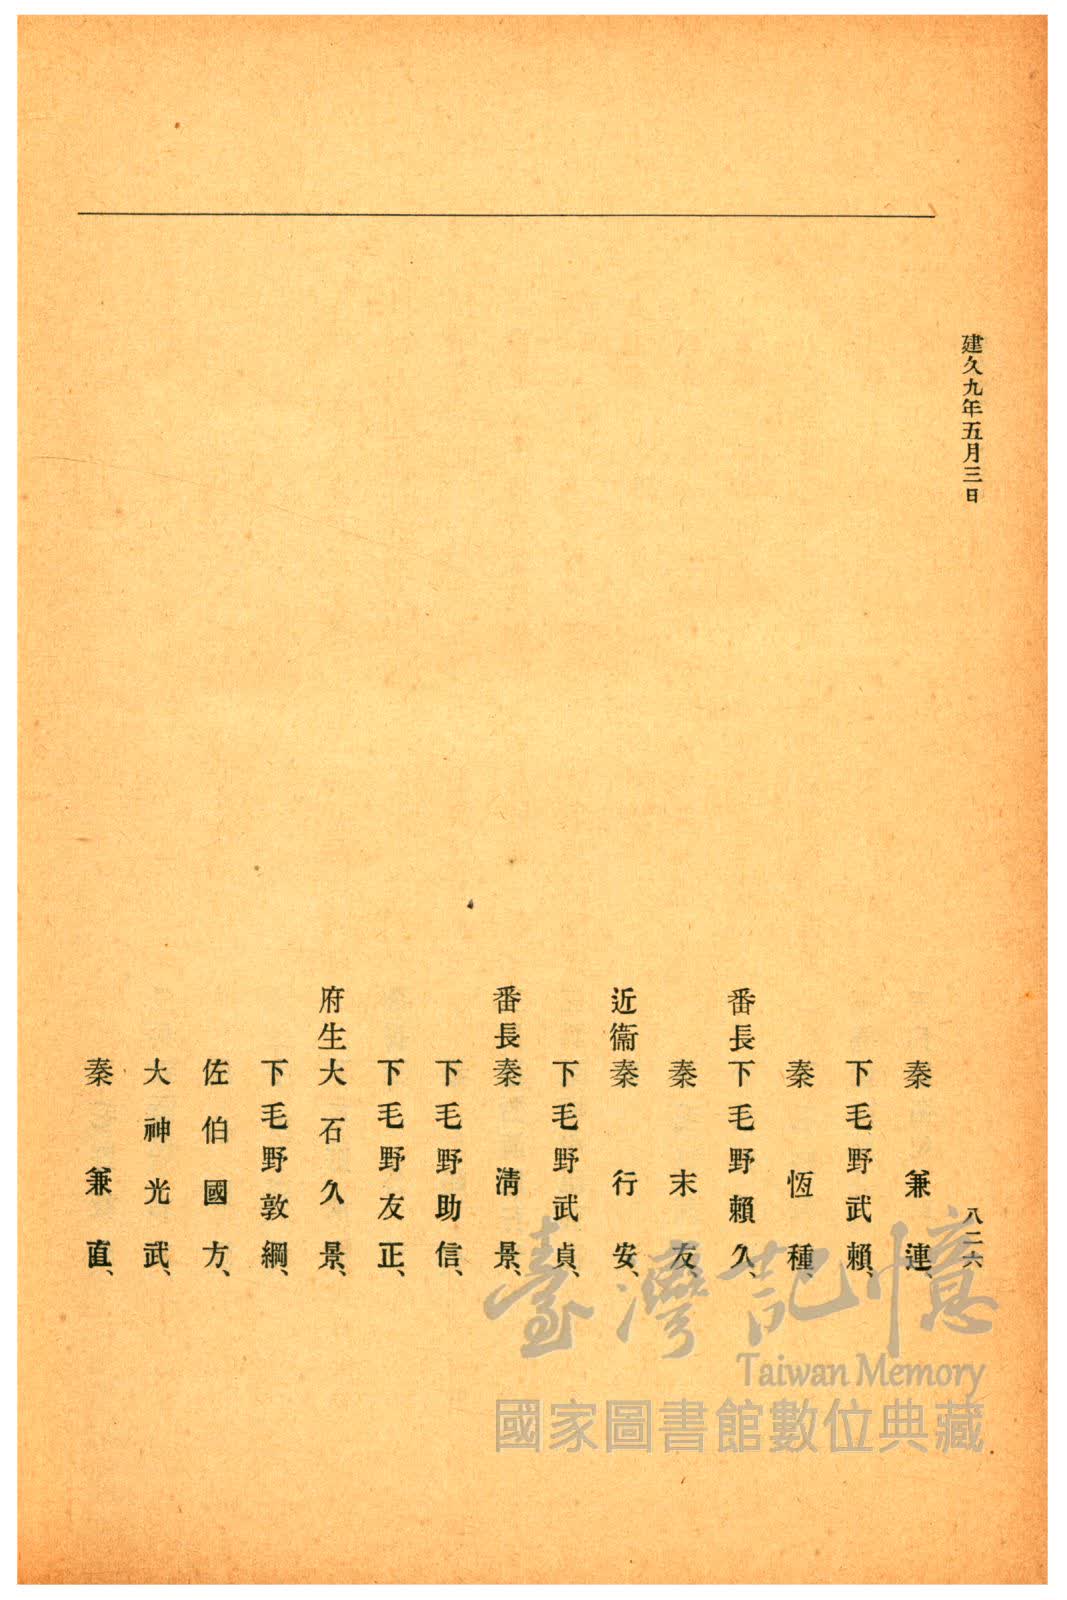 建久九年五月三日
八二六
秦兼連、
下毛野武賴、
秦恆種、
番長下毛野賴久、
秦末友、
近衞秦行安、
下毛野武貞、
番長秦淸景、
下毛野助信、
下毛野友正、
府生大石久景、
下毛野敦綱、
佐伯國方、
大神光武、
秦兼直、
臺灣記憶
Taiwan Memory
國家圖書館數位典藏